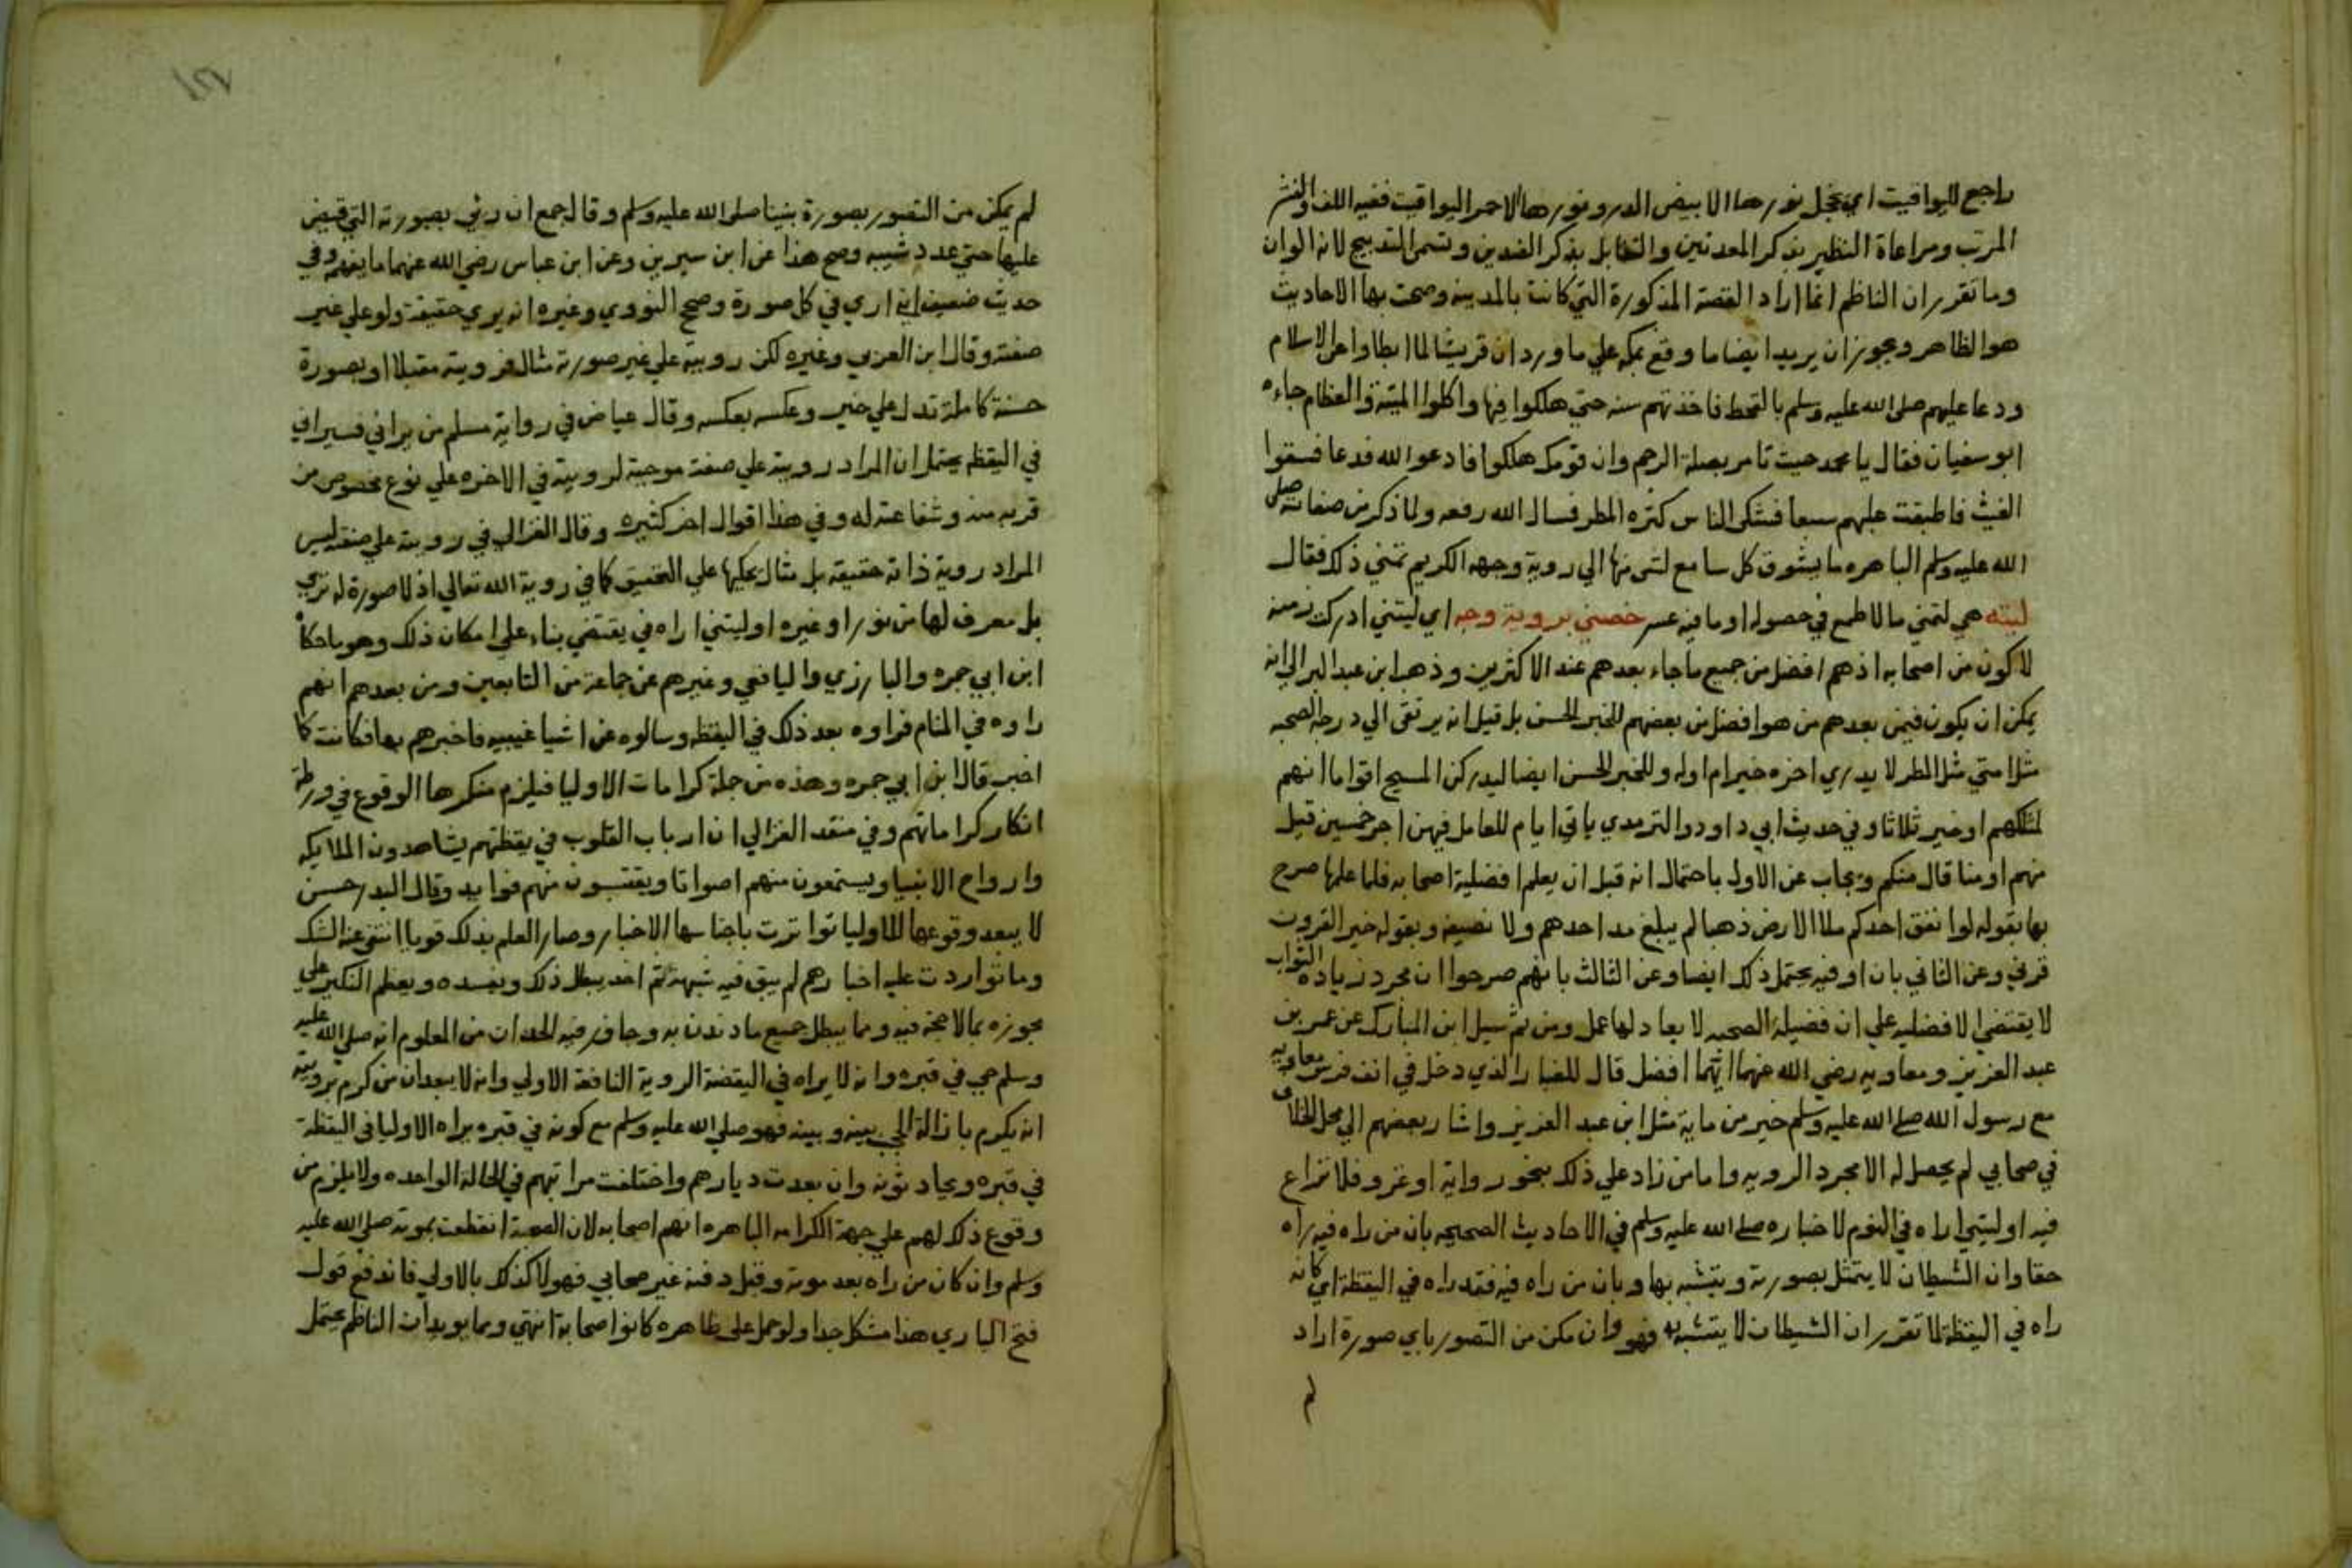 راجع لليواقيت اي يخجل نورها الابيض الدر ونورها الاحمر اليواقيت ففيه اللف والنشر
المرتب ومراعاة النظير بذكر المعدنين والتقابل بذكر الضدين وتسمى التدبيج لانه الوان
وما تقرر ان الناظم انما اراد القصة المذكورة التي كانت بالمدينه وصحت بها الاحاديث
هو الظاهر ويجوز ان يريد ايضا ما وقع بمكه علي ما ورد ان قريشا لما ابطاوا عن الاسلام
ودعا عليهم صلى الله عليه وسلم بالقحط فاخذتهم سنه حتي هلكوا فيها واكلوا الميتة والعظام جاءه
ابو سفيان فقال يا محمد جيت تامر بصلة الرحم وان قومك هلكوا فادعوا الله فدعا فسقوا
الغيث فاطبقت عليهم سبعا فشكى الناس كثره المطر فسال الله رفعه ولما ذكر من صفاته صلى
الله عليه وسلم الباهره ما يشوق كل سامع لشي منها الي روية وجهه الكريم تمني ذلك فقال
ليته هي لتمني ما لا طمع في حصوله او ما فيه عسر خصني بروية وجه اي ليتني ادركت زمنه
لاكون من اصحابه اذ هم افضل من جميع ما جاء بعدهم عند الاكثرين وذهب ابن عبد البر الي انه
يمكن ان يكون فيمن بعدهم من هو افضل من بعضهم للخبر الحسن بل قيل انه يرتقى الي درجة الصحه
مثل امتي مثل المطر لا يدري اخره خير ام اوله وللخبر الحسن ايضا ليدركن المسيح اقواما انهم
لمثلكهم او خير ثلاثا وفي حديث ابي داود والترمدي ياتي ايام للعامل فيهن اجر خمسين قيل
منهم او منا قال منكم ويجاب عن الاول باحتمال انه قبل ان يعلم افضلية اصحابه فلما علمها صرح
بها بقوله لو انفق احدكم ملا الارض ذهبا لم يبلغ مد احدهم ولا نصيفه وبقوله خير القرون
قرني وعن الثاني بان او فيه يحتمل ذلك ايضا وعن الثالث بانهم صرحوا ان مجرد زياده الثواب
لا يقتضي الافضليه علي ان فضيلة الصحبه لا يعادلها عمل ومن ثم سيل ابن المبارك عن عمر بن
عبد العزيز ومعاويه رضي الله عنهما ايهما افضل قال للغبار الذي دخل في انف فرس معاويه
مع رسول الله صلى الله عليه وسلم خير من ماية مثل ابن عبد العزيز واشار بعضهم الي محل الخلاف
في صحابي لم يحصل له الا مجرد الرويه واما من زاد علي ذلك بنحو رواية او غزو فلا نزاع
فيه او ليتني اراه في النوم لاخباره صلى الله عليه وسلم في الاحاديث الصحيحه بان من راه فيه راه
حقا وان الشيطان لا يتمثل بصورته ويتشبه بها وبان من راه فيه فقد راه في اليقظة اي كانه
راه في اليقظة لما تقرر ان الشيطان لا يتشبه به فهو وان مكن من التصور باي صورة اراد
لم
١٤٧
لم يمكن من التصور بصورة نبينا صلى الله عليه وسلم وقال جمع ان ري بصورته التي قبض
عليها حتي عدد شيبه وصح هذا عن ابن سيرين وعن ابن عباس رضي الله عنهما ما يفهمه وفي
حديث ضعيف اني اري في كل صورة وصحح النووي وغيره انه يري حقيقة ولو علي غير
صفته وقال ابن العربي وغيره لكن رويته علي غير صورته مثال فرويته مقبلا او بصورة
حسنة كاملة تدل علي خير وعكسه بعكسه وقال عياض في رواية مسلم من يراني فسيراني
في اليقظه يحتمل ان المراد رويته علي صفة موجبة لرويته في الاخره علي نوع مخصوص من
قربه منه وشفاعته له وفي هذا اقوال اخر كثيره وقال الغزالي في رويته علي صفته ليس
المراد روية ذاته حقيقة بل مثال يحكيها علي التحقيق كما في روية الله تعالي اذ لا صورة له تري
بل معرف لها من نور او غيره او ليتني اراه في يقتضي بناء علي امكان ذلك وهو ما حكاه
ابن ابي جمره والبارزي واليافعي وغيرهم عن جماعة من التابعين ومن بعدهم انهم
راوه في المنام فراوه بعد ذلك في اليقظه وسالوه عن اشيا غيبيه فاخبرهم بها فكانت كما
اخبر قال ابن ابي جمره وهذه من جملة كرامات الاوليا فيلزم منكرها الوقوع في ورطة
انكار كراماتهم وفي منقد الغزالي ان ارباب القلوب في يقظتهم يشاهدون الملايكه
وارواح الانبيا ويستمعون منهم اصواتا ويقتبسون منهم فوايد وقال البدر حسن
لا يبعد وقوعها للاوليا تواترت باجناسها الاخبار وصار العلم بذلك قويا انتفي عنه الشك
وما تواردت عليه اخبارهم لم يبق فيه شبهة ثم اخذ يبطل ذلك ويفسده ويعظم النكير علي
مجوزه بما لا حجة فيه ومما يبطل جميع ما دندن به وجازف فيه الحدان من المعلوم انه صلي الله عليه
وسلم حي في قبره وانه لا يراه في اليقضة الروية النافعة الاولي وانه لا يبعد ان من كرم برويته
انه يكرم بازالة الحجب بينه وبينه فهو صلي الله عليه وسلم مع كونه في قبره يراه الاوليا في اليقظة
في قبره ويحادثونه وان بعدت ديارهم واختلفت مراتبهم في الحالة الواحده ولا يلزم من
وقوع ذلك لهم علي جهة الكرامه الباهره انهم اصحابه لان الصحبة انقطعت بموته صلي الله عليه
وسلم وان كان من راه بعد موته وقبل دفنه غير صحابي فهولا كذلك بالاولي فاندفع قول
فتح الباري هذا مشكل جدا ولو حمل على ظاهره كانوا صحابة انتهي ومما يويد ان الناظم يحتمل